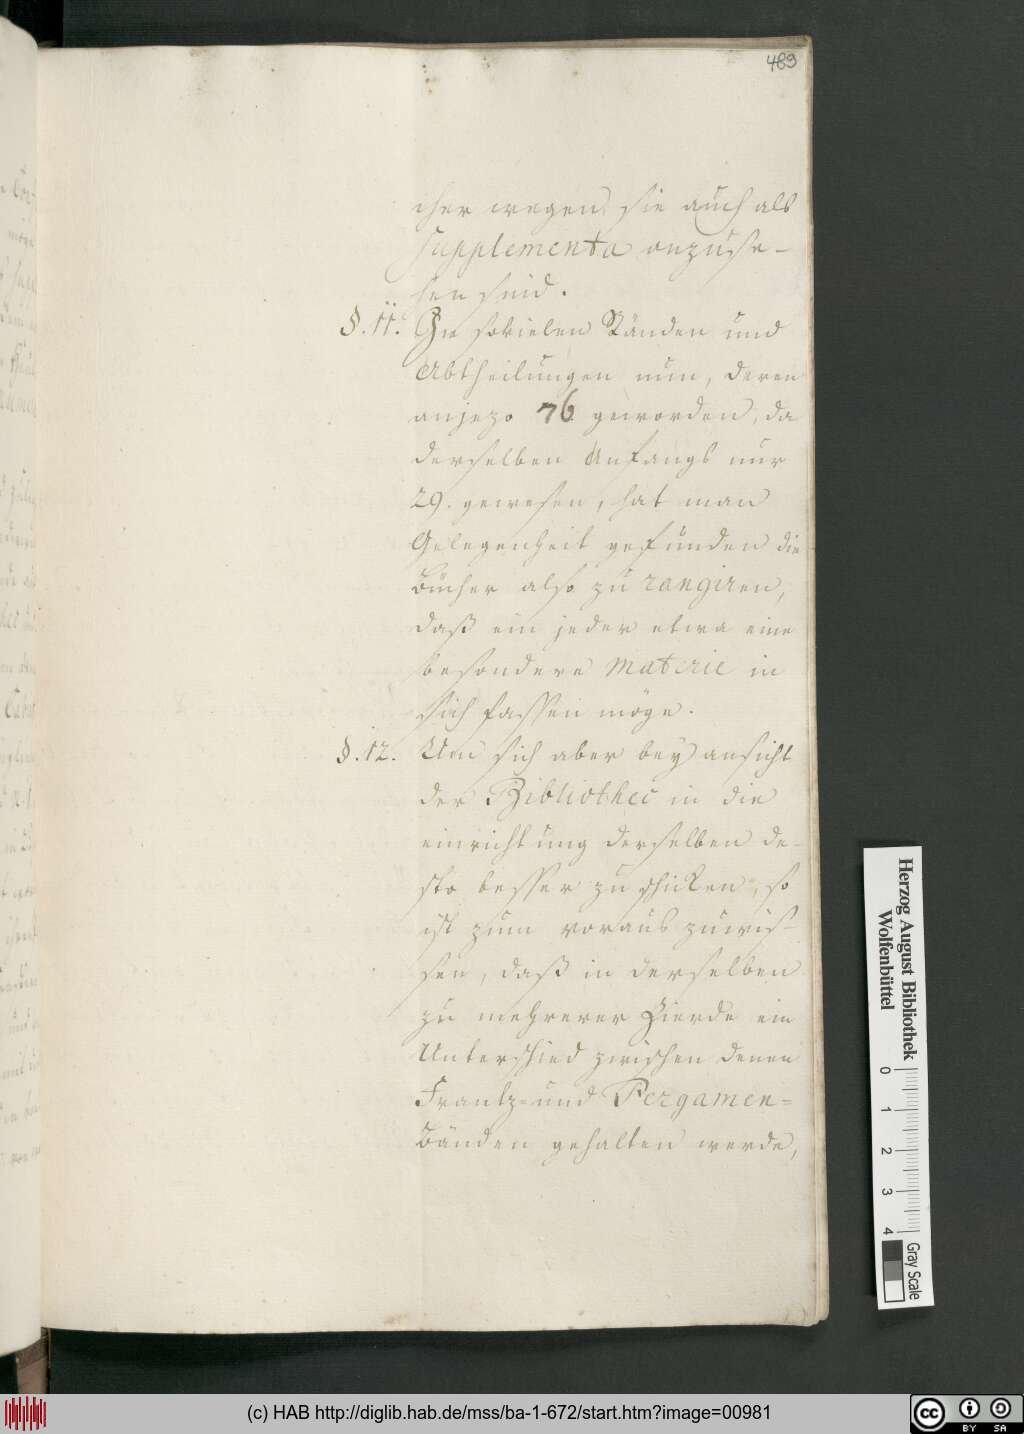 489
cher wegen sie auch als
supplementa anzuse-
hen sind.
§. 11. In sovielen Ständen und
Abtheilungen nun, deren
anjezo 76 geworden, da
derselben Anfangs nur
29. gewesen, hat man
Gelegenheit gefunden die
Bücher also zu rangiren,
daß ein jeder etwa eine
besondere materie in
sich fassen möge.
§. 12. Um sich aber bey ansicht
der Bibliothec in die
einrichtung derselben de-
sto besser zu schicken, so
ist zum voraus zu wis-
sen, daß in derselben
zu mehrerer Zierde ein
Unterschied zwischen denen
Frantz- und Pergamen=
Bänden gehalten werde,
Herzog August Bibliothek
Wolfenbüttel
0 1 2 3 4
Gray Scale
(c) HAB http://diglib.hab.de/mss/ba-1-672/start.htm?image=00981
cc BY SA